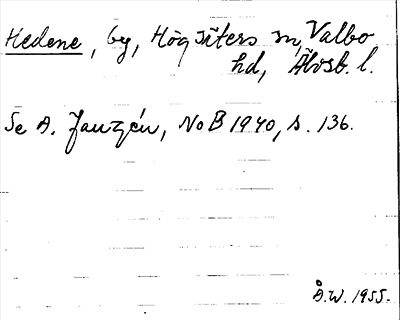 Hedene, by, Högsäters sn, Valbo
hd, Älvsb. l.
Se A. Janzén, NoB 1940, s. 136.
Å.W. 1955.